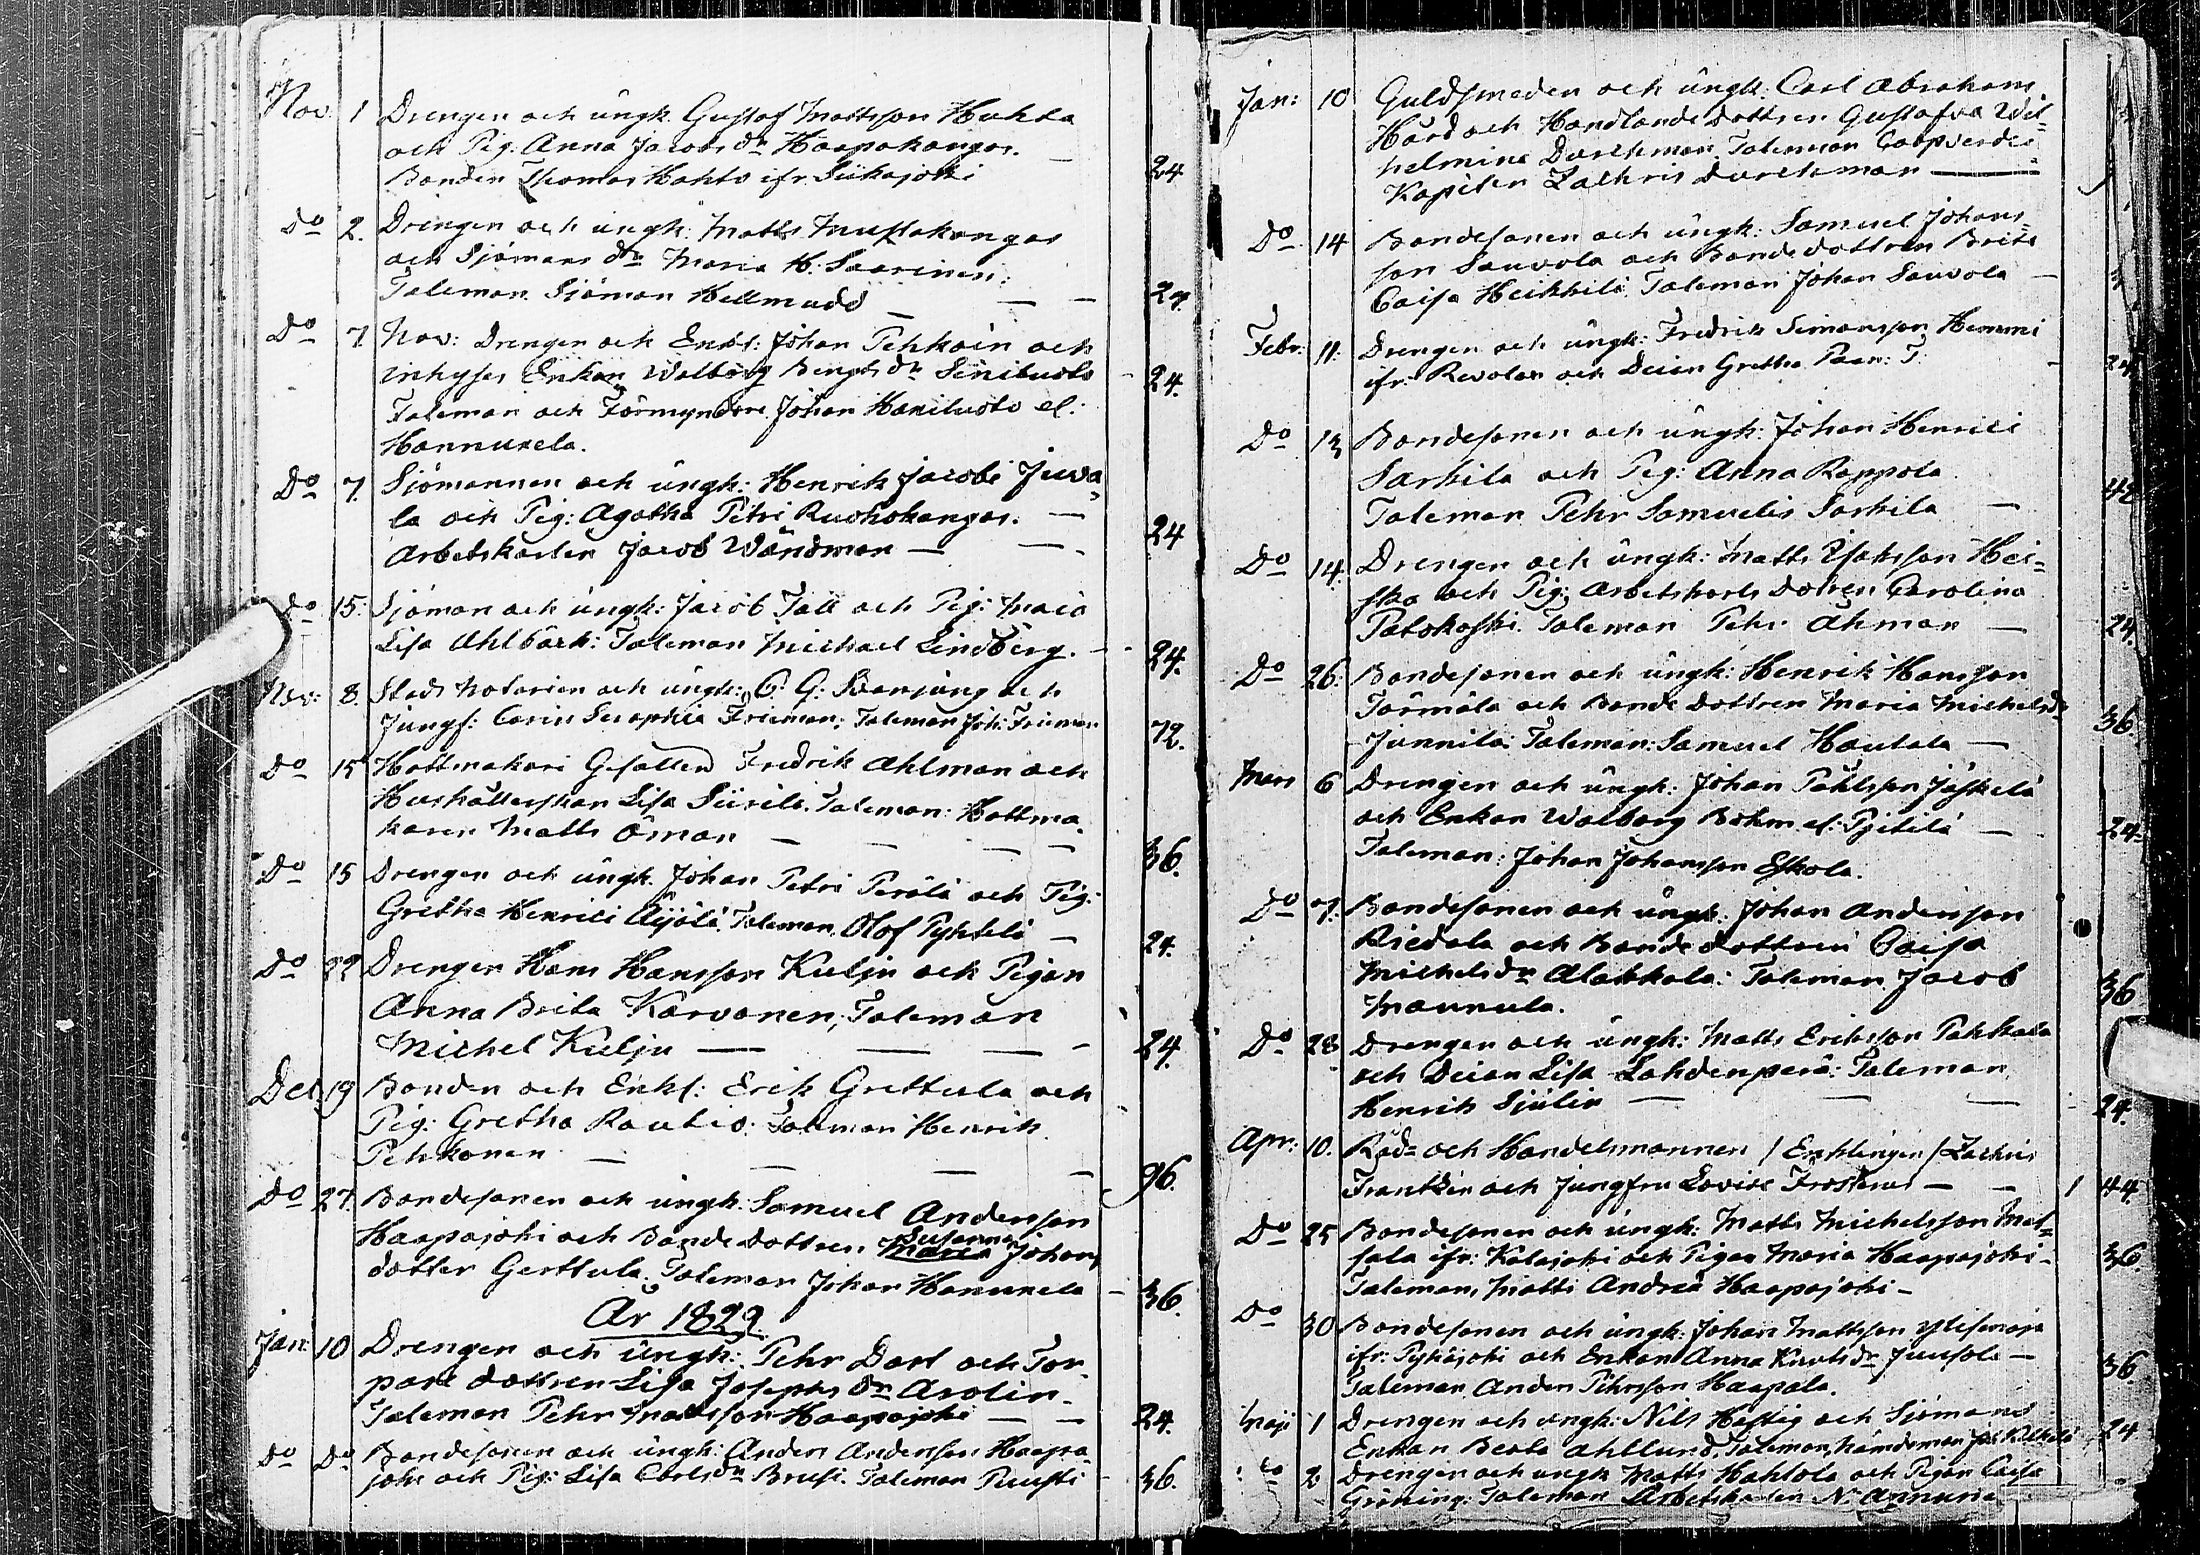 Nov: 1 Drengen och ungk. Gustaf Mattsson Huhta
och Pig. Anna Jacobs dr Haapakangas. —
Bonden Thomas Hahto ifr. Siikajoki 24
Do 2. Drengen och ungk. Matts Mustakangas
och Sjömans dr Maria H. Saarinen:
Taleman Sjöman Hellmudd — — 24.
Do 7. Nov: Drengen och Enkl: Johan Pehkoin och
inhyses Enkan Walborg Bengts dr Siniluoto 24.
Taleman och Förmyndare Johan Haniluoto el.
Hannuxela.
Do 7. Sjömannen och ungk: Henrik Jacobi Juva=
la och Pig: Agatha Petri Ruohokangas. — 24
Arbetskarlen Jacob Wändman — —
Do 15. Sjöman och ungk: Jacob Tall och Pig: Maia
Lisa Ahlbäck: Taleman Michael Lindberg. 24.
Nov: 8. Stads Notarien och ungk: C. G: Svanljung och
Jungf: Carin Seraphia Frieman: Taleman Joh: Frieman 72.
Do 15 Hattmakari Gesällen Fredrik Ahlman och
Hushållerskan Lisa Siirilä. Taleman: Hattma=
karen Matts Öman — — — — 36.
Do 15 Drengen och ungk. Johan Petri Perälä och Pig:
Gretha Henrici Äijälä, Taleman Olof Pyhtilä — 24.
Do 22 Drengen Hans Hansson Kulju och Pigan
Anna Brita Karvonen, Taleman
Michel Kulju — — — 24.
Dec 19 Bonden och Enkl: Erik Grettula och
Pig: Gretha Rautio. Taleman Henrik
Pehkonen — — — — 96.
Do 27. Bondesonen och ungk. Samuel Andersson
Haapajoki och Bande dottren Susanna Maria Johans
dotter Gerttula. Taleman Johan Hannuxela — 36.
År 1822.
Jan: 10 Drengen och ungk: Pehr Dorl och Tor=
pare dottren Lisa Josephs dr Arolin.
Taleman Pehr Mattsson Haapajoki — — 24.
Do Do Bondesonen och ungk: Anders Andersson Haapa=
joki och Pig: Lisa Carls dr Brusi. Taleman Puusti 36.
Jan: 10 Guldsmeden och ungk: Carl Abrahams
Hård och Handlande dottren Gustafva Wil=
helmina Durchman. Taleman Coopverdie
Kapiten Zachris Durchman —
Do 14 Bondesonen och ungk: Samuel Johans=
son Sauvola och Bonde dottren Brita
Caisa Heikkilä. Taleman Johan Sauvola —
Febr: 11. Drengen och ungk: Fredrik Simonsson Hemmi
ifr: Revolax och Deian Gretha Paan: T: 24.
Do 13 Bondesonen och ungk: Johan Henrici
Sarkila och Pig: Anna Rappola
Taleman Pehr Samuelis Sarkila — 48
Do 14. Drengen och ungk: Matts Isaksson Hei=
ska och Pig: Arbetskarls dotren Carolina
Patokoski. Taleman Pehr Åhman — 24.
Do 26. Bondesonen och ungk: Henrik Hansson
Törmälä och Bonde dottren Maria Michels dr
Junnila: Taleman: Samuel Hautala — 36.
Mars 6 Drengen och ungk: Johan Påhlsson Jäskelä
och Enkan Walborg Bohm el: Pjetilä — 24.
Taleman: Johan Johansson Eskola.
Do 7. Bondesonen och ungk. Johan Andersson
Kiedala och Bonde dottren Caisa
Michels dr Alakkala: Taleman Jacob
Maunula. 36
Do 28 Drengen och ungk: Matts Eriksson Pakkala
och Deian Lisa Lahdenperä: Taleman
Henrik Sjulin — — — 24.
Apr: 10. Råd= och Handelsmannen / Enklingen / Zachris
Frantzén och Jungfru Lovisa Frosterus — — 1 44
Do 25 Bondesonen och ungk: Matts Michelsson Mat=
sala ifr: Kalajoki och Pigan Maria Haapajoki — 36.
Taleman, Matti Andreä Haapajoki —
Do 30 Bondesonen och ungk: Johan Mattsson Ylisenaja
ifr: Pyhäjoki och Enkan Anna Knuts dr Juusola — 36.
Taleman Anders Pehrsson Haapala.
Maji 1 Drengen och ungk: Nils Hastig och Sjömans
Enkan Beata Ahllund, Taleman, Nämdeman Jos 24
Do 2 Drengen och ungk Matts Hahtola och Pigan Caisa
Gröning: Taleman Arbetskarlen N. Annuna